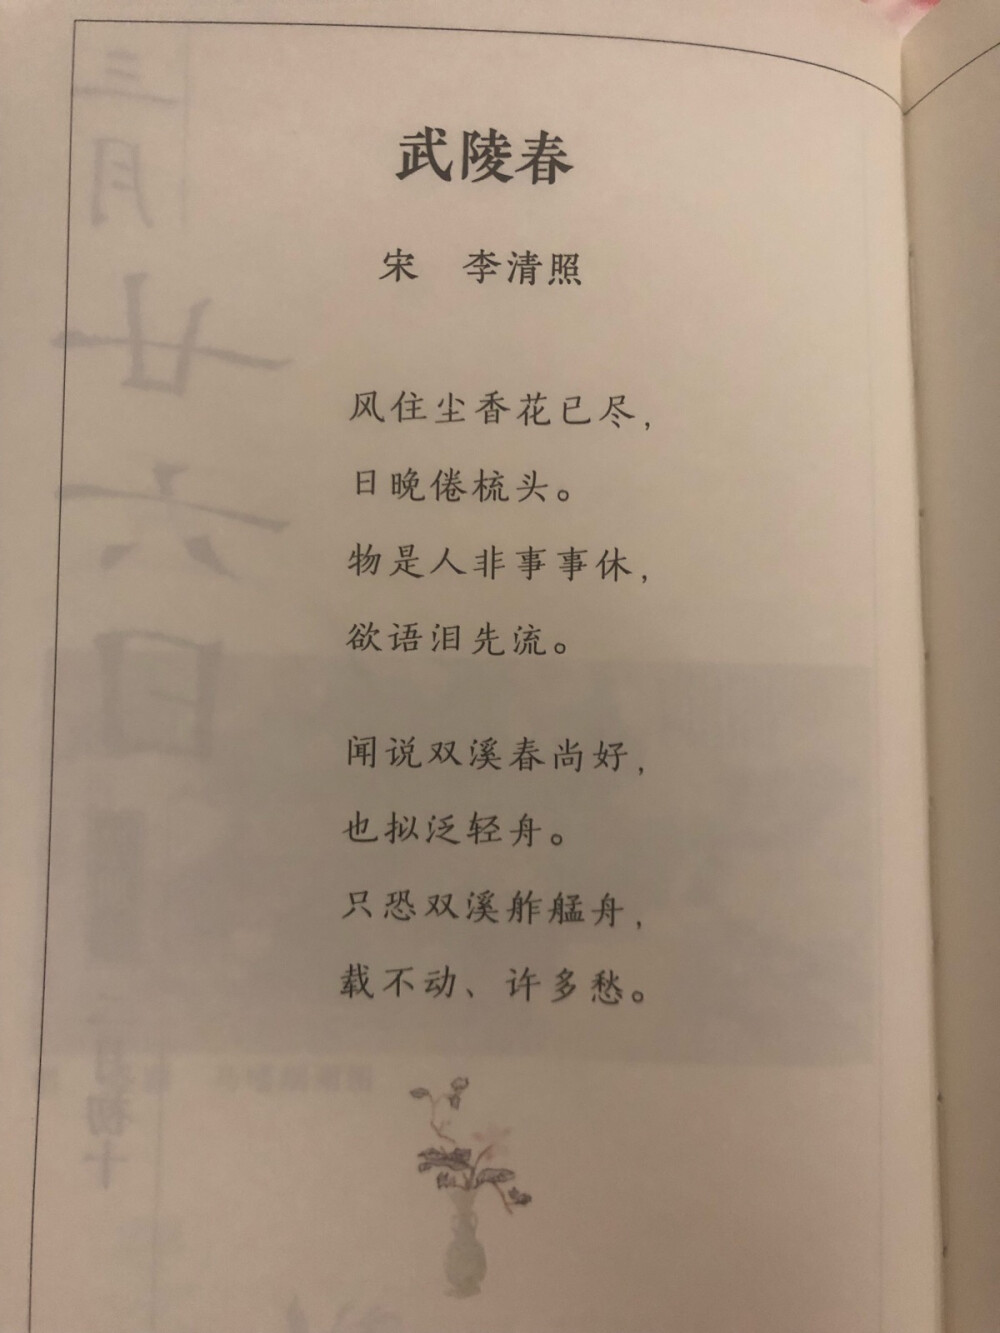 武陵春
宋　李清照
风住尘香花已尽，
日晚倦梳头。
物是人非事事休，
欲语泪先流。
闻说双溪春尚好，
也拟泛轻舟。
只恐双溪舴艋舟，
载不动、许多愁。
三月廿六日
二月初十